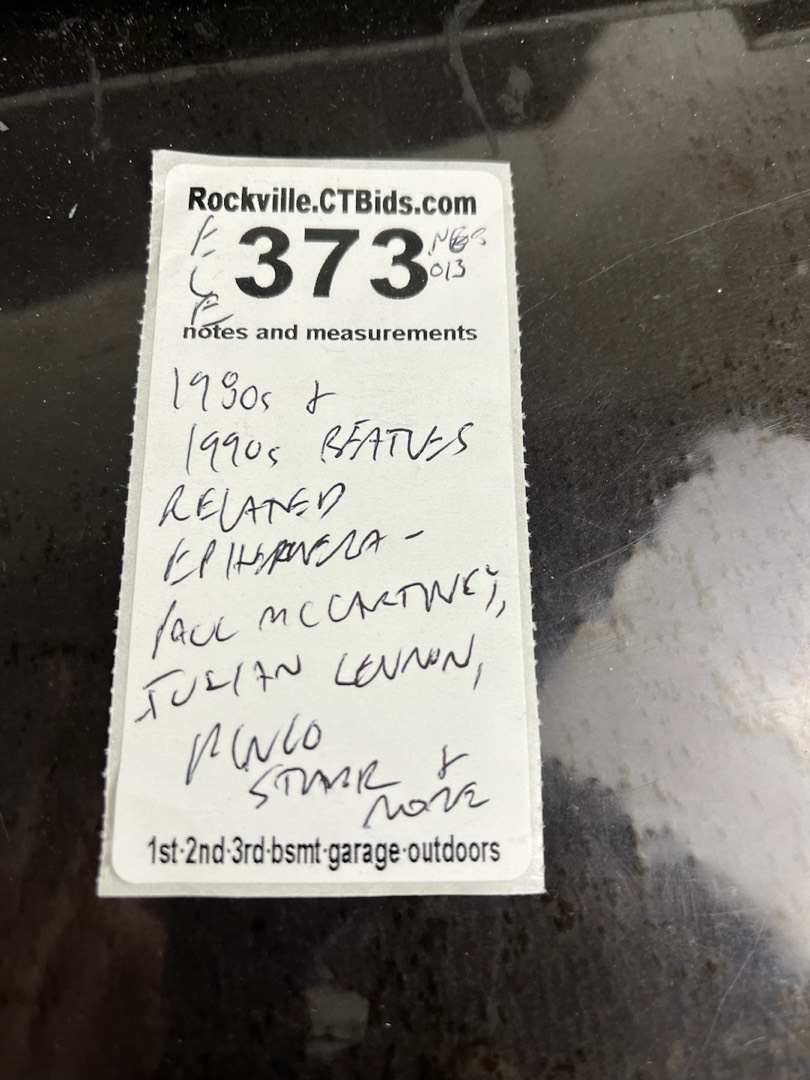 Rockville.CTBids.com
373
013
notes and measurements
1980s &
1990s BEATLES
RELATED
EPHEMERA -
PAUL MCCARTNEY,
JULIAN LENNON,
RINGO
STARR &
MORE
1st·2nd·3rd·bsmt·garage·outdoors